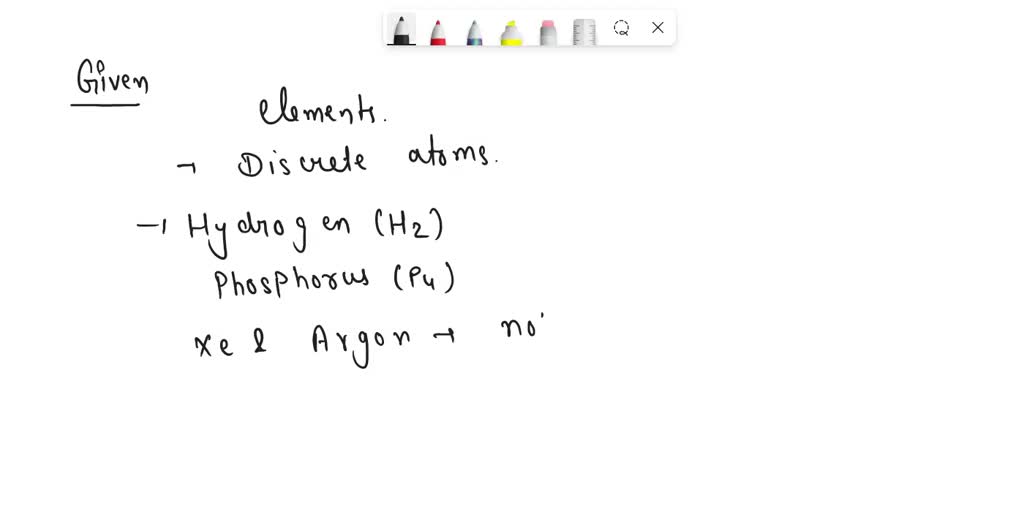 Given
elements.
→ Discrete atoms.
→ Hydrogen (H2)
Phosphorus (P4)
Xe & Argon → no